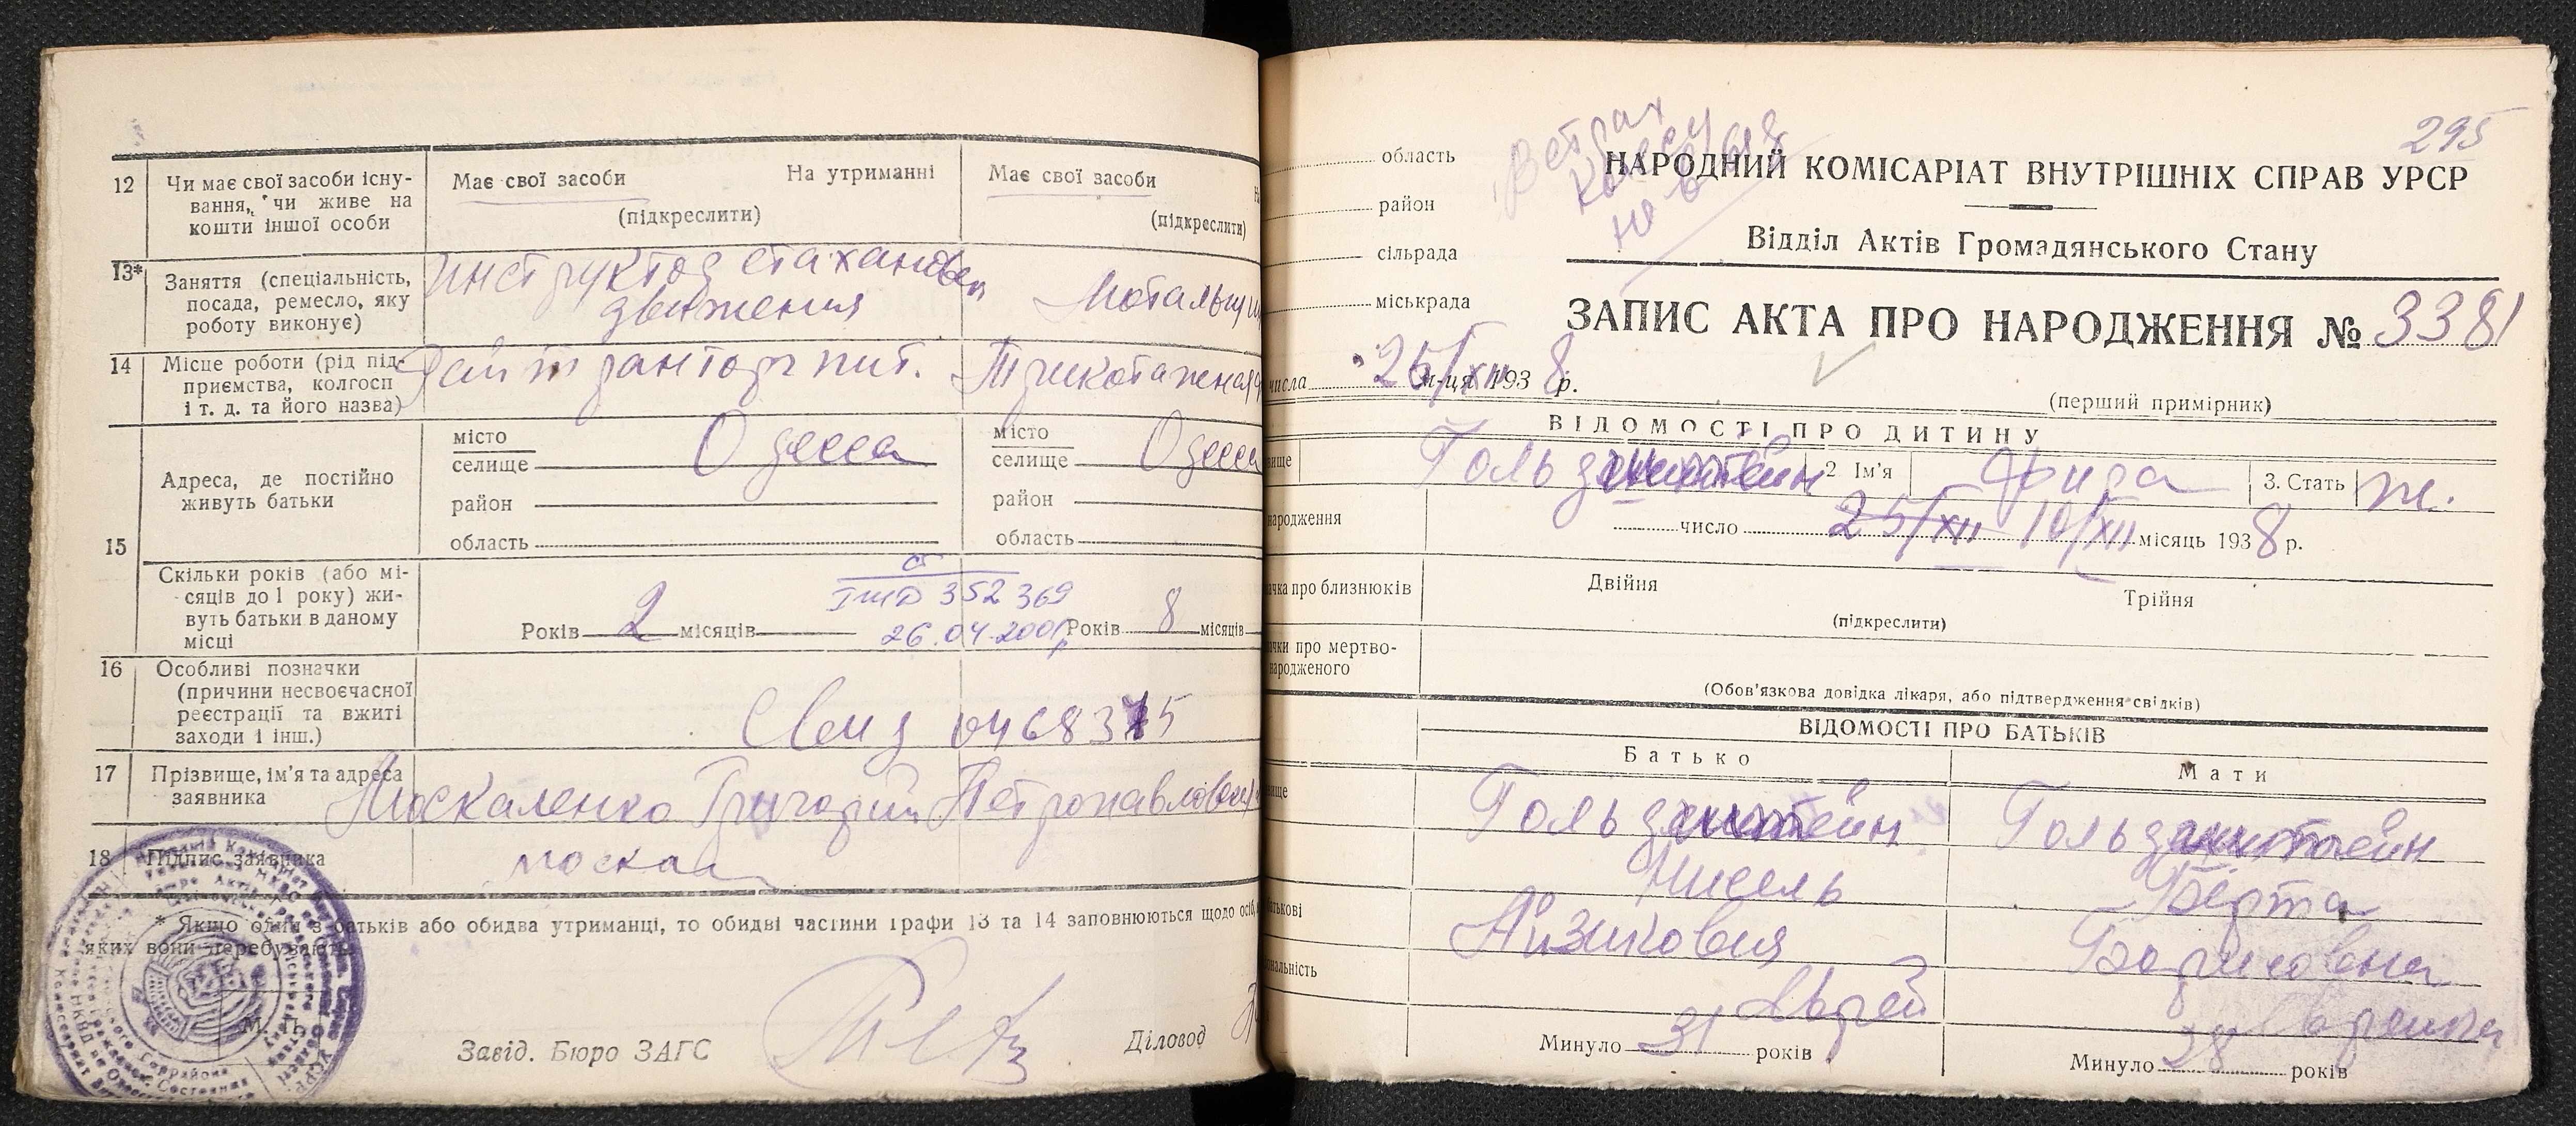 12 Чи має свої засоби існу-
вання, чи живе на
кошти іншої особи
Має свої засоби На утриманні
(підкреслити)
Має свої засоби
(підкреслити)
13* Заняття (спеціальність,
посада, ремесло, яку
роботу виконує)
Инструктор стаханов
движения
14 Місце роботи (рід під-
приємства, колгосп
і т. д. та його назва)
Трикотажная
15 Адреса, де постійно
живуть батьки
місто
селище Одесса
район
область
місто
селище Одесса
район
область
Скільки років (або мі-
сяців до 1 року) жи-
вуть батьки в даному
місці
Років 2 місяців
352369
26.04.2001р
Років 8 місяців
16 Особливі позначки
(причини несвоєчасної
реєстрації та вжиті
заходи і інш.)
17 Прізвище, ім'я та адреса
заявника
Москаленко Григорий Петропавловск
18 Підпис заявника
москал
* Якщо один з батьків або обидва утриманці, то обидві частини графи 13 та 14 заповнюються щодо осіб,
яких вони перебувають
М. П.
Завід. Бюро ЗАГС
Діловод
295
область
район
сільрада
міськрада
НАРОДНИЙ КОМІСАРІАТ ВНУТРІШНІХ СПРАВ УРСР
Відділ Актів Громадянського Стану
ЗАПИС АКТА ПРО НАРОДЖЕННЯ № 3381
числа 25/XII м-ця 1938 р.
(перший примірник)
ВІДОМОСТІ ПРО ДИТИНУ
вище Гольдштейн 2 Ім'я Фрида 3. Стать ж.
народження
число 25/XII 10/XII місяць 1938 р.
ачка про близнюків Двійня Трійня
(підкреслити)
ачки про мертво-
народженого
(Обов'язкова довідка лікаря, або підтвердження свідків)
ВІДОМОСТІ ПРО БАТЬКІВ
Батько Мати
вище Гольдштейн Гольдштейн
Нисель Берта
атькові Айзикович Борисовна
ональність Еврей Еврейка
Минуло 31 років
Минуло 28 років